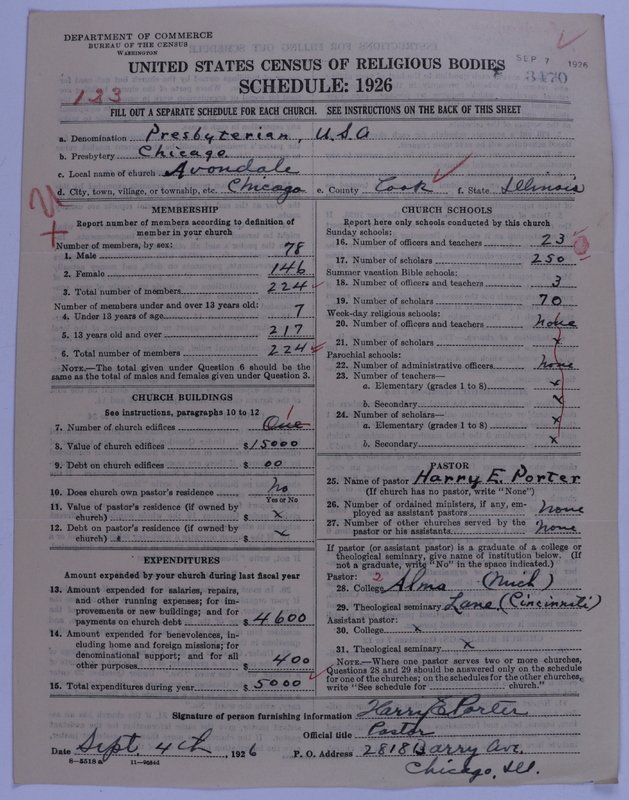 DEPARTMENT OF COMMERCE
BUREAU OF THE CENSUS
WASHINGTON
UNITED STATES CENSUS OF RELIGIOUS BODIES
SEP 7 1926
3470
SCHEDULE: 1926
133
FILL OUT A SEPARATE SCHEDULE FOR EACH CHURCH. SEE INSTRUCTIONS ON THE BACK OF THIS SHEET
a. Denomination Presbyterian, U.S.A
b. Presbytery Chicago
c. Local name of church Avondale
d. City, town, village, or township, etc. Chicago e. County Cook f. State Illinois
MEMBERSHIP
Report number of members according to definition of
member in your church
Number of members, by sex:
1. Male 78
2. Female 146
3. Total number of members 224
Number of members under and over 13 years old:
4. Under 13 years of age 7
5. 13 years old and over 217
6. Total number of members 224
NOTE.—The total given under Question 6 should be the
same as the total of males and females given under Question 3.
CHURCH BUILDINGS
See instructions, paragraphs 10 to 12
7. Number of church edifices One 1
8. Value of church edifices $15000
9. Debt on church edifices $ 00
10. Does church own pastor's residence No
Yes or No
11. Value of pastor's residence (if owned by
church) $ x
12. Debt on pastor's residence (if owned by
church) $ x
EXPENDITURES
Amount expended by your church during last fiscal year
13. Amount expended for salaries, repairs,
and other running expenses; for im-
provements or new buildings; and for
payments on church debt $4600
14. Amount expended for benevolences, in-
cluding home and foreign missions; for
denominational support; and for all
other purposes $ 400
15. Total expenditures during year $5000
CHURCH SCHOOLS
Report here only schools conducted by this church
Sunday schools:
16. Number of officers and teachers 23
17. Number of scholars 250
Summer vacation Bible schools:
18. Number of officers and teachers 3
19. Number of scholars 70
Week-day religious schools:
20. Number of officers and teachers None
21. Number of scholars x
Parochial schools:
22. Number of administrative officers None
23. Number of teachers—
a. Elementary (grades 1 to 8) x
b. Secondary x
24. Number of scholars—
a. Elementary (grades 1 to 8) x
b. Secondary x
PASTOR
25. Name of pastor Harry E. Porter
(If church has no pastor, write "None")
26. Number of ordained ministers, if any, em-
ployed as assistant pastors None
27. Number of other churches served by the
pastor or his assistants None
If pastor (or assistant pastor) is a graduate of a college or
theological seminary, give name of institution below. (If
not a graduate, write "No" in the space indicated.)
Pastor: 2
28. College Alma (Mich)
29. Theological seminary Lane (Cincinnati)
Assistant pastor:
30. College x
31. Theological seminary x
NOTE.—Where one pastor serves two or more churches,
Questions 28 and 29 should be answered only on the schedule
for one of the churches; on the schedules for the other churches,
write "See schedule for church."
Signature of person furnishing information Harry E Porter
Official title Pastor
Date Sept. 4th, 1926 P. O. Address 2818 Barry Ave.
8-5518 a
Chicago, Ill.